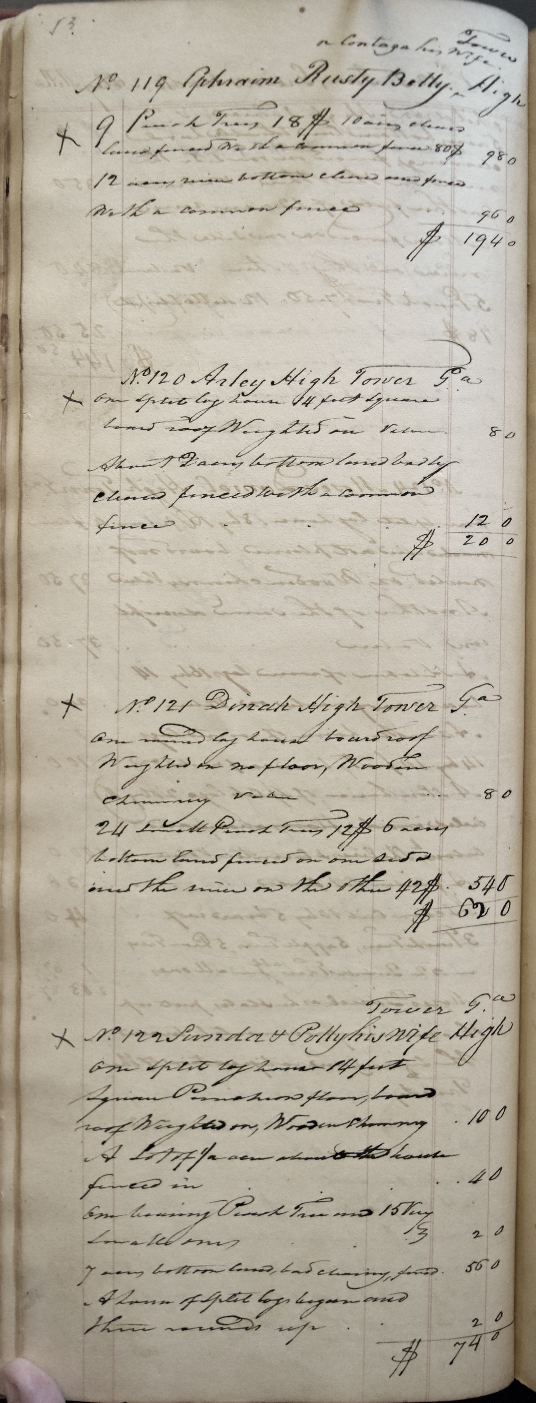 53
or Contaga his Wife Tower
No 119 Ephraim Rusty Belly, High
9 Peach Trees 18$ 10 acres cleared
land fenced with a common fence 80$ 980
12 acres river bottom cleared and fenced
with a common fence 960
$ 1940
No 120 Arley High Tower Ga
One split log house 14 feet square
board roof Weighted on Value 80
About 2 acres bottom land badly
cleared fenced with a common
fence 120
$ 200
No 121 Dinah High Tower Ga
One round log house board roof
Weighted on no floor, Wooden
Chimney Value 80
24 Small Peach Trees 12$ 6 acres
bottom land fenced on one side
and the river on the other 42$ 540
$ 620
Tower Ga
No 122 Sunday & Polly his Wife High
One split log house 14 feet
square Puncheon floor, board
roof Weighted on, Wooden Chimney 100
A Lot of acre about the house
fenced in 40
One bearing Peach Tree and 15 Very
Small ones 20
7 acres bottom land, bad clearing, fend. 560
A house of split logs began and
three rounds up 20
$ 740